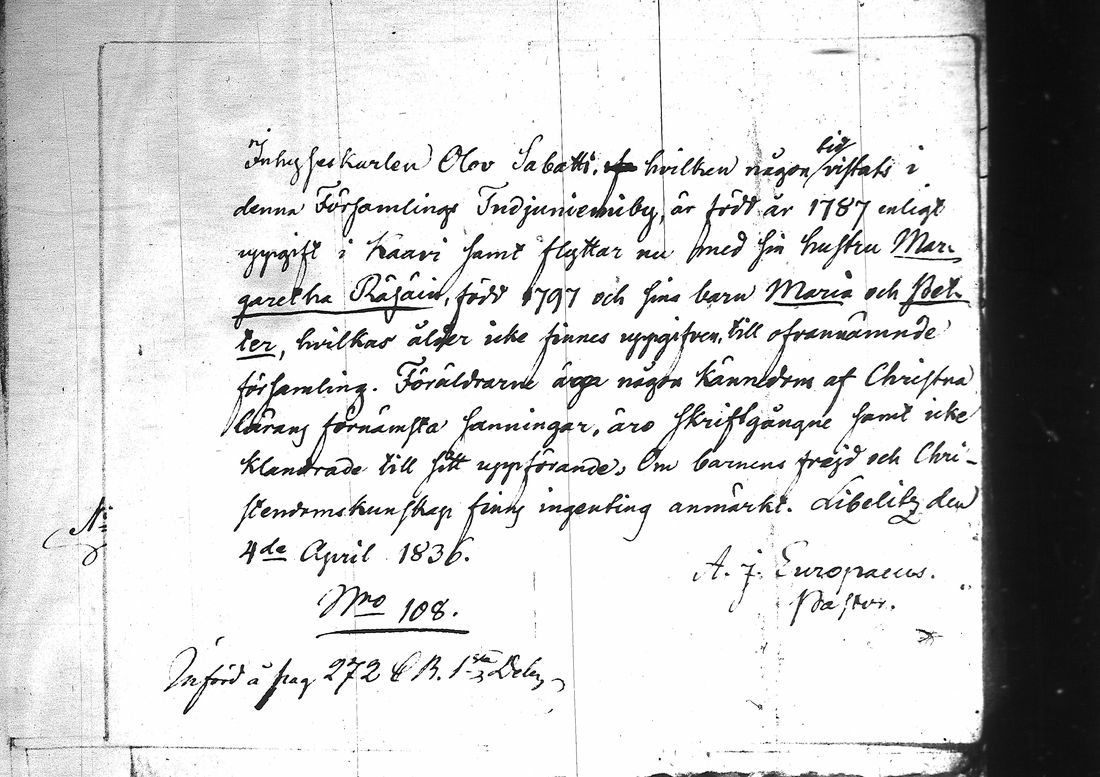 Inhyseskarlen Olov Sabatti, hvilken någon tid vistats i
denna Församlings Tudjuniemiby, är född år 1787 enligt
uppgift i Kaavi samt flyttar nu med sin hustru Mar-
garetha Räsäin, född 1797 och sina barn Maria och Pet-
ter, hvilkas ålder icke finnes uppgifven, till ofvannämnde
församling. Föräldrarne äga någon kännedom af Christna
lärans förnämsta sanningar, äro skriftgångne samt icke
klandrade till sitt uppförande. Om barnens frejd och Chri-
stendomskunskap finns ingenting anmärkt. Libelitz den
4de April 1836.
A. J. Europaeus.
Pastor.
Nro 108.
Införd å pag 272 C B. 1sta Delen
N: